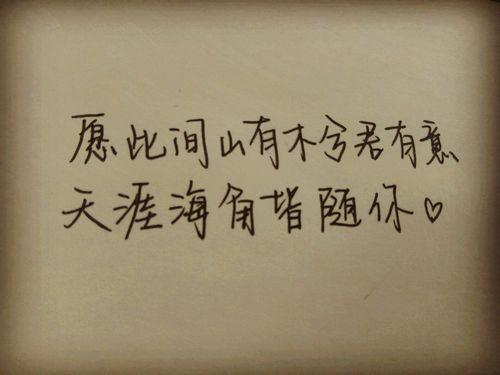 愿此间山有木兮君有意
天涯海角皆随你♡